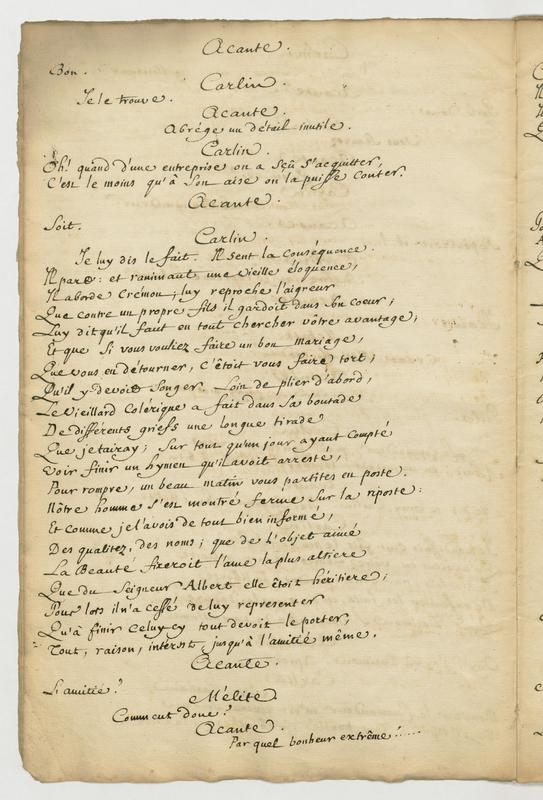 Acante.
Bon.
Carlin.
Je le trouve.
Acante.
Abrége un détail inutile.
Carlin.
Oh! quand d'une entreprise on a sçû s'acquitter,
C'est le moins qu'à son aise on la puisse conter.
Acante.
Soit.
Carlin.
Je luy dis le fait. Il sent la conséquence.
Il part: et ranimant une vieille éloquence,
Il aborde Crémon; luy reproche l'aigreur
Que contre un propre fils il gardoit dans son coeur;
Luy dit qu'il faut en tout chercher vôtre avantage;
Et que si vous vouliez faire un bon mariage,
Que vous en détourner, c'étoit vous faire tort;
Qu'il y devoit songer. Loin de plier d'abord,
Le vieillard colérique a fait dans sa boutade
De différents griefs une longue tirade
Que je tairay; sur tout qu'un jour ayant compté
Voir finir un hymen qu'il avoit arresté,
Pour rompre, un beau matin vous partites en poste.
Nôtre homme s'est montré ferme sur la riposte:
Et comme je l'avois de tout bien informé,
Des qualitez, des noms; que de l'objet aimé
La Beauté fixeroit l'ame la plus altiere
Que du Seigneur Albert elle êtoit héritiere;
Pour lors il n'a cessé de luy representer
Qu'à finir celuy cy tout devoit le porter,
Tout, raison, interest, jusqu'à l'amitié même.
Acante.
L'amitié?
Mélite.
Comment donc?
Acante.
Par quel bonheur extrême!.....